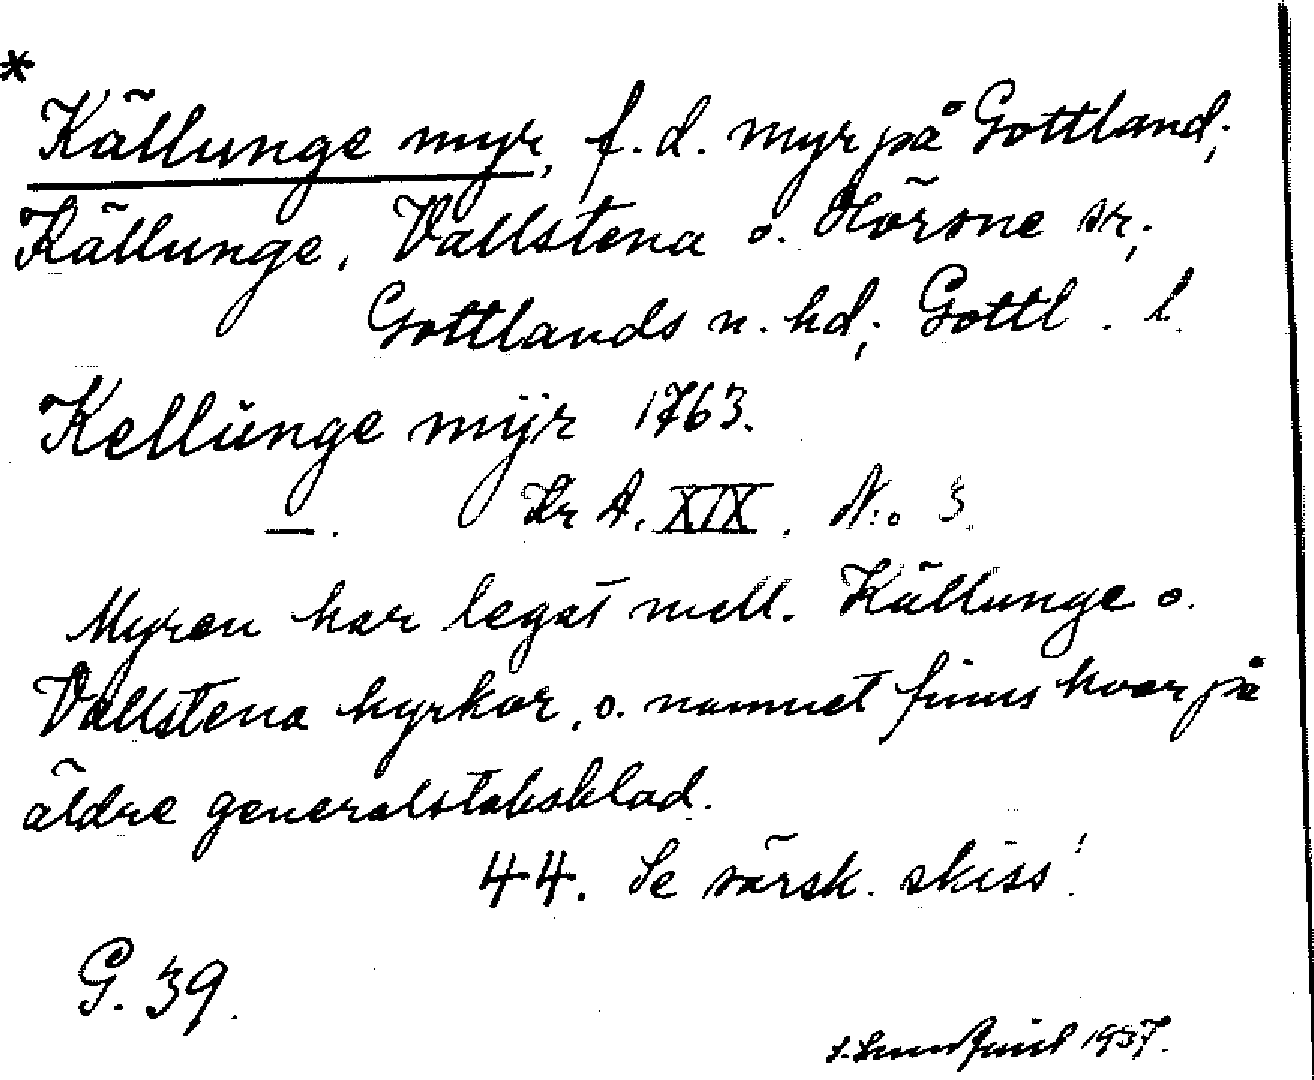 *
Källunge myr, f. d. myr på Gottland;
Källunge, Vallstena o. Hörsne sr;
Gottlands n. hd; Gottl. l.
Kellunge mÿr 1763.
—. Lr A. XIX. N:o 3.
Myren har legat mell. Källunge o.
Vallstena kyrkor, o. namnet finns kvar på
äldre generalstabsblad.
44. Se särsk. skiss!
G. 39.
1937.